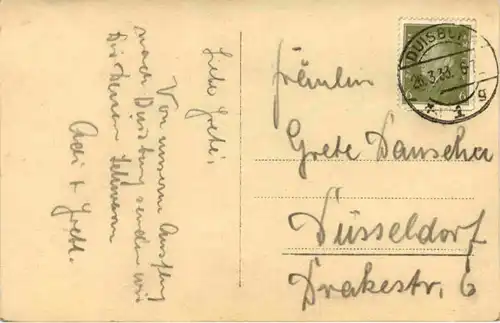 Liebe Grete,
Von unserm Ausflug
nach Duisburg senden wir
Dir
Adi + Gretl.
DUISBURG
20.3.33.
* 1 g
6 6
Fräulein
Grete Danscher
Düsseldorf
Drakestr. 6